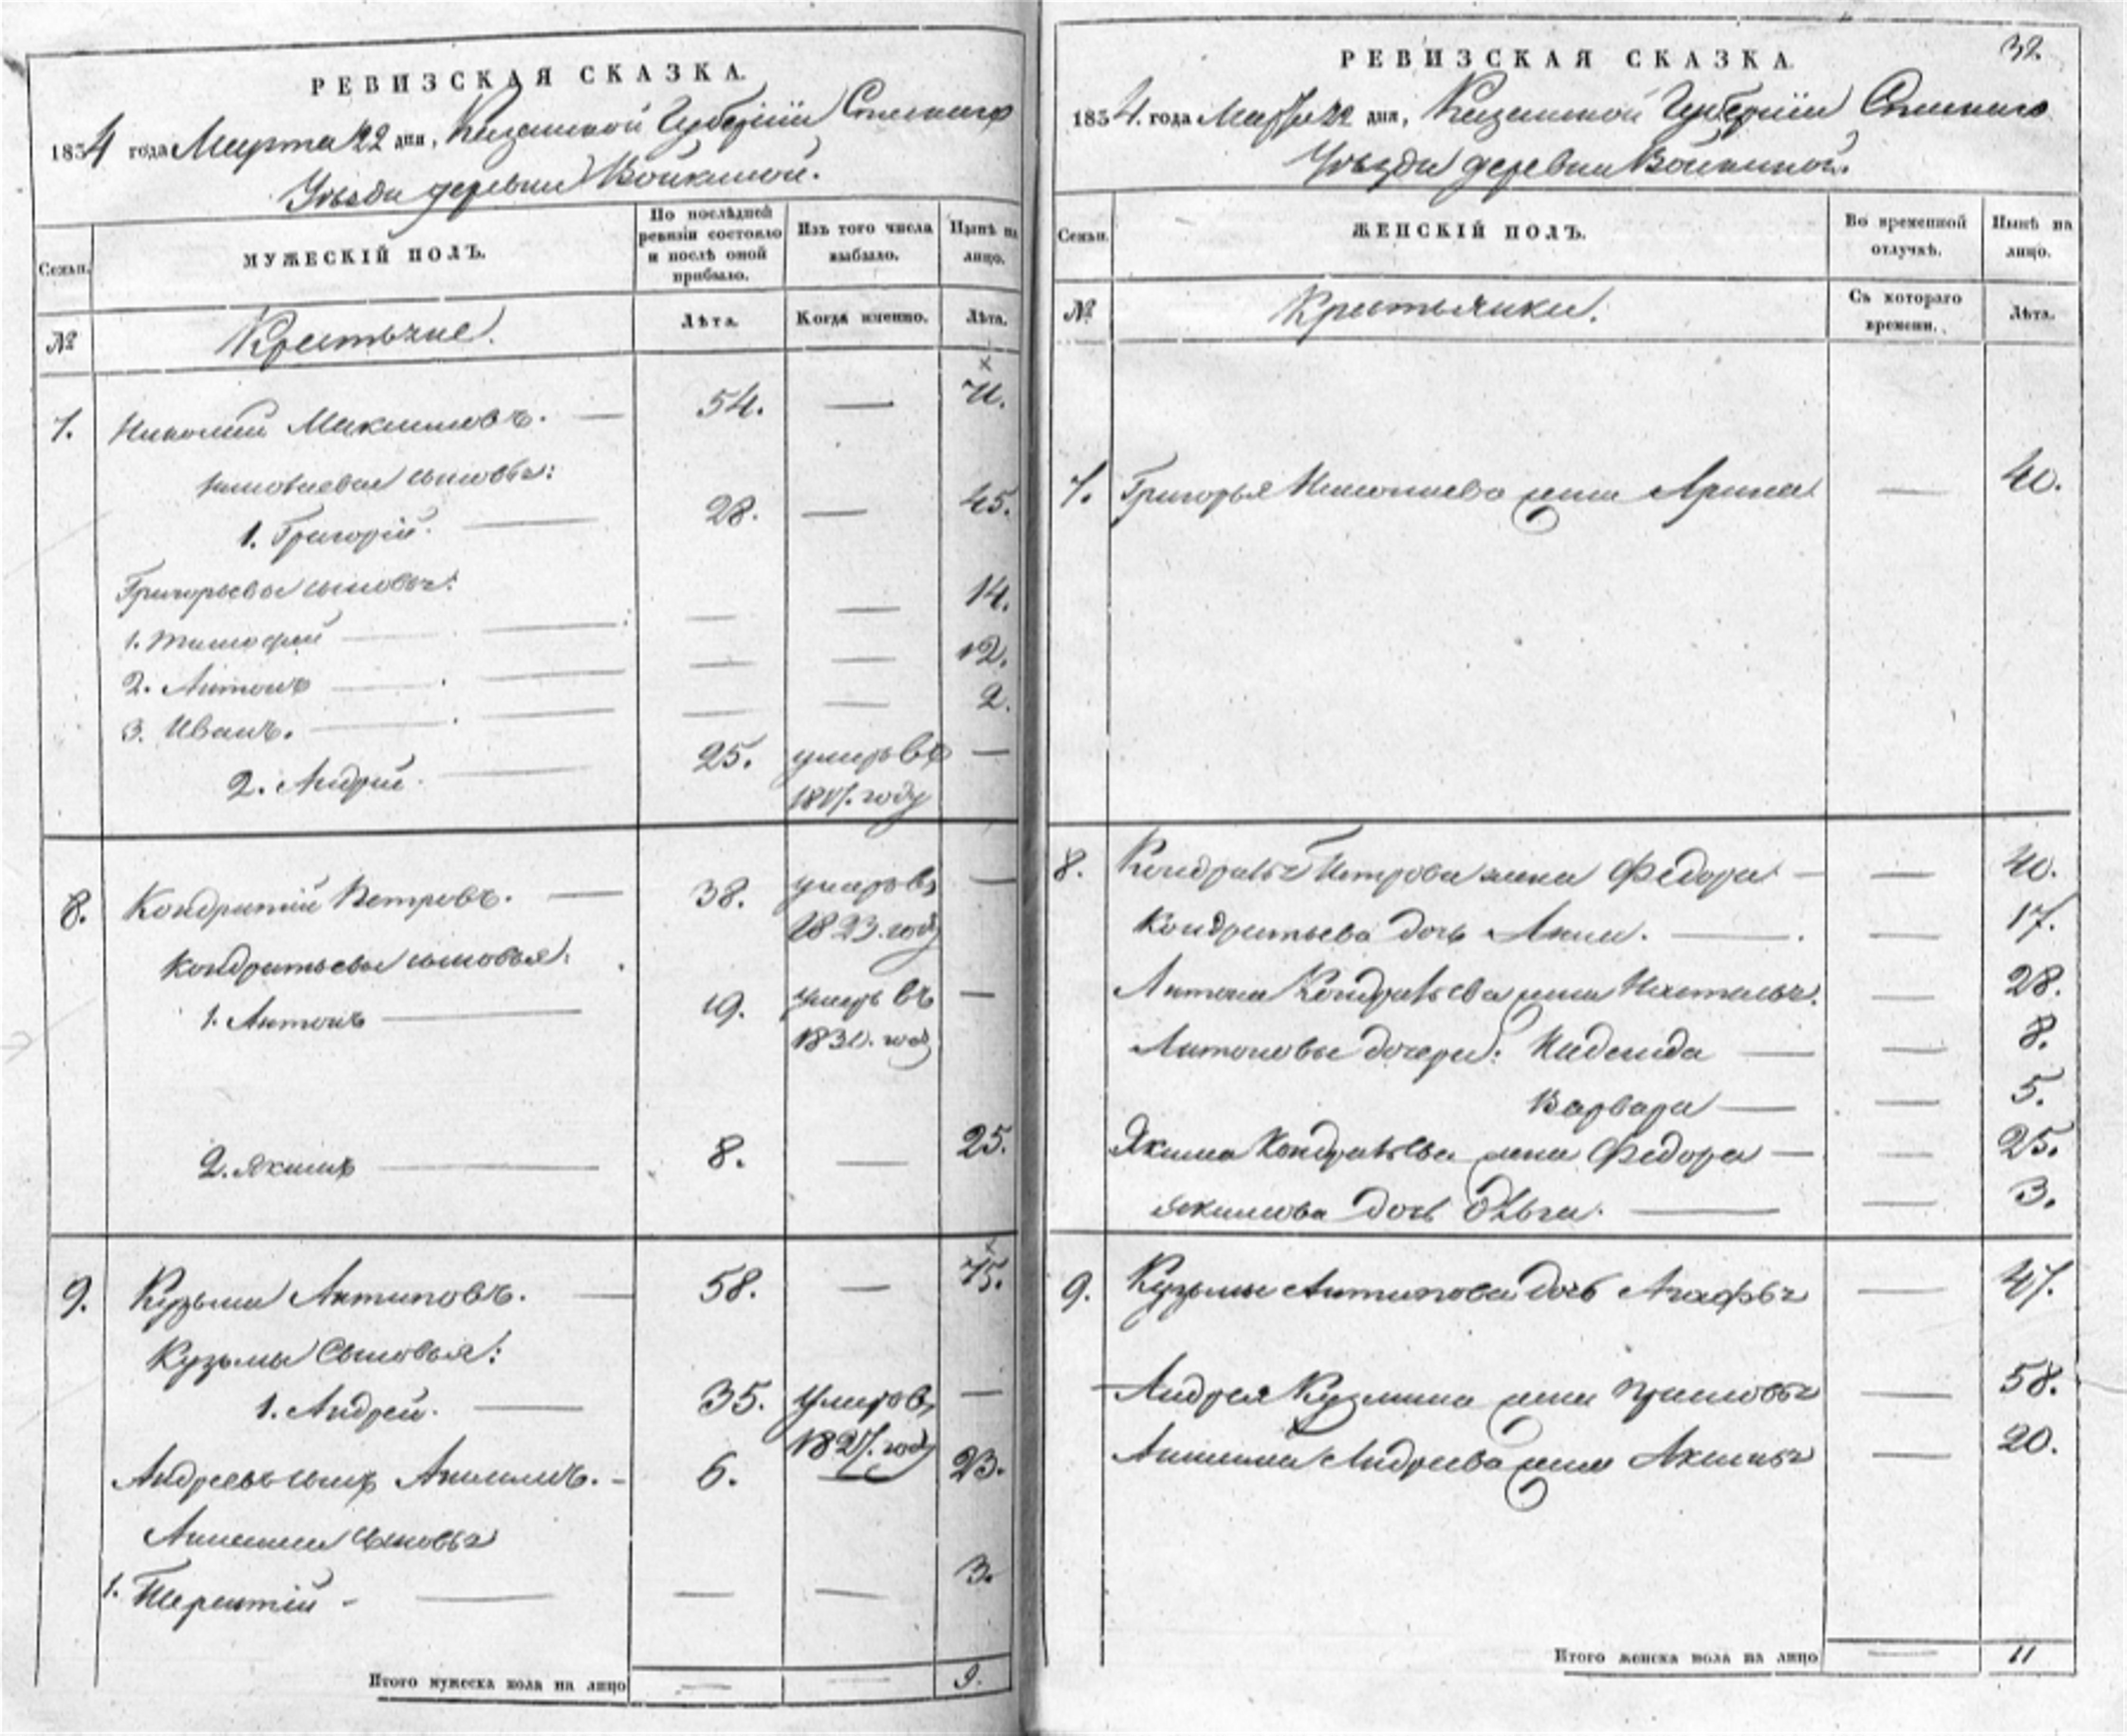 РЕВИЗСКАЯ СКАЗКА.
1834 года Марта 22 дня, Казанской Губернии Спаскаго
Уѣзда деревни Войкиной.
Семьи.
МУЖЕСКІЙ ПОЛЪ.
По послѣдней
ревизіи состояло
и послѣ оной
прибыло.
Изъ того числа
выбыло.
Нынѣ на
лицо.
№
Крестьяне.
Лѣта.
Когда именно.
Лѣта.
7. Николай Максимовъ. — 54. — 71.
Николаевы сыновья:
1. Григорій. — 28. — 45.
Григорьевы сыновья:
1. Тимофей — — — 14.
2. Антонъ — — — 12.
3. Иванъ. — — — 2.
2. Андрей. — 25. умеръ въ —
18 году
8. Кондратій Петровъ. — 38. умеръ въ —
1823. году
Кондратьевы сыновья:
1. Антонъ — 19. умеръ въ —
1831. году
2. Якимъ — 8. — 25.
9. Кузьма Антиповъ. — 58. — 75.
Кузьмы Сыновья:
1. Андрей. — 35. умеръ въ —
1827. году
Андреевъ сынъ Анисимъ. — 6. — 23.
Анисима сыновья
1. Терентій — — — 3.
Итого мужеска пола на лицо — — 9.
32.
РЕВИЗСКАЯ СКАЗКА.
1834. года Марта 22 дня, Казанской Губерніи Спаскаго
Уѣзда деревни Войкиной.
Семьи.
ЖЕНСКІЙ ПОЛЪ.
Во временной
отлучкѣ.
Нынѣ на
лицо.
№
Крестьянки.
Съ котораго
времени.
Лѣта.
7. Григорья Николаева жена Арина — 40.
8. Кондратья Петрова жена Федора — — 40.
Кондратьева дочь Анна. — — 17.
Антона Кондратьева жена Наталья. — 28.
Антоновы дочери: Надежда — — 8.
Варвара — — 5.
Якима Кондратьева жена Федора — — 25.
Якимова дочь — — 3.
9. Кузьмы Антипова дочь Агафья — 47.
Андрея Кузмина жена — 58.
Анисима Андреева жена Аксинья — 20.
Итого женска пола на лицо — 11